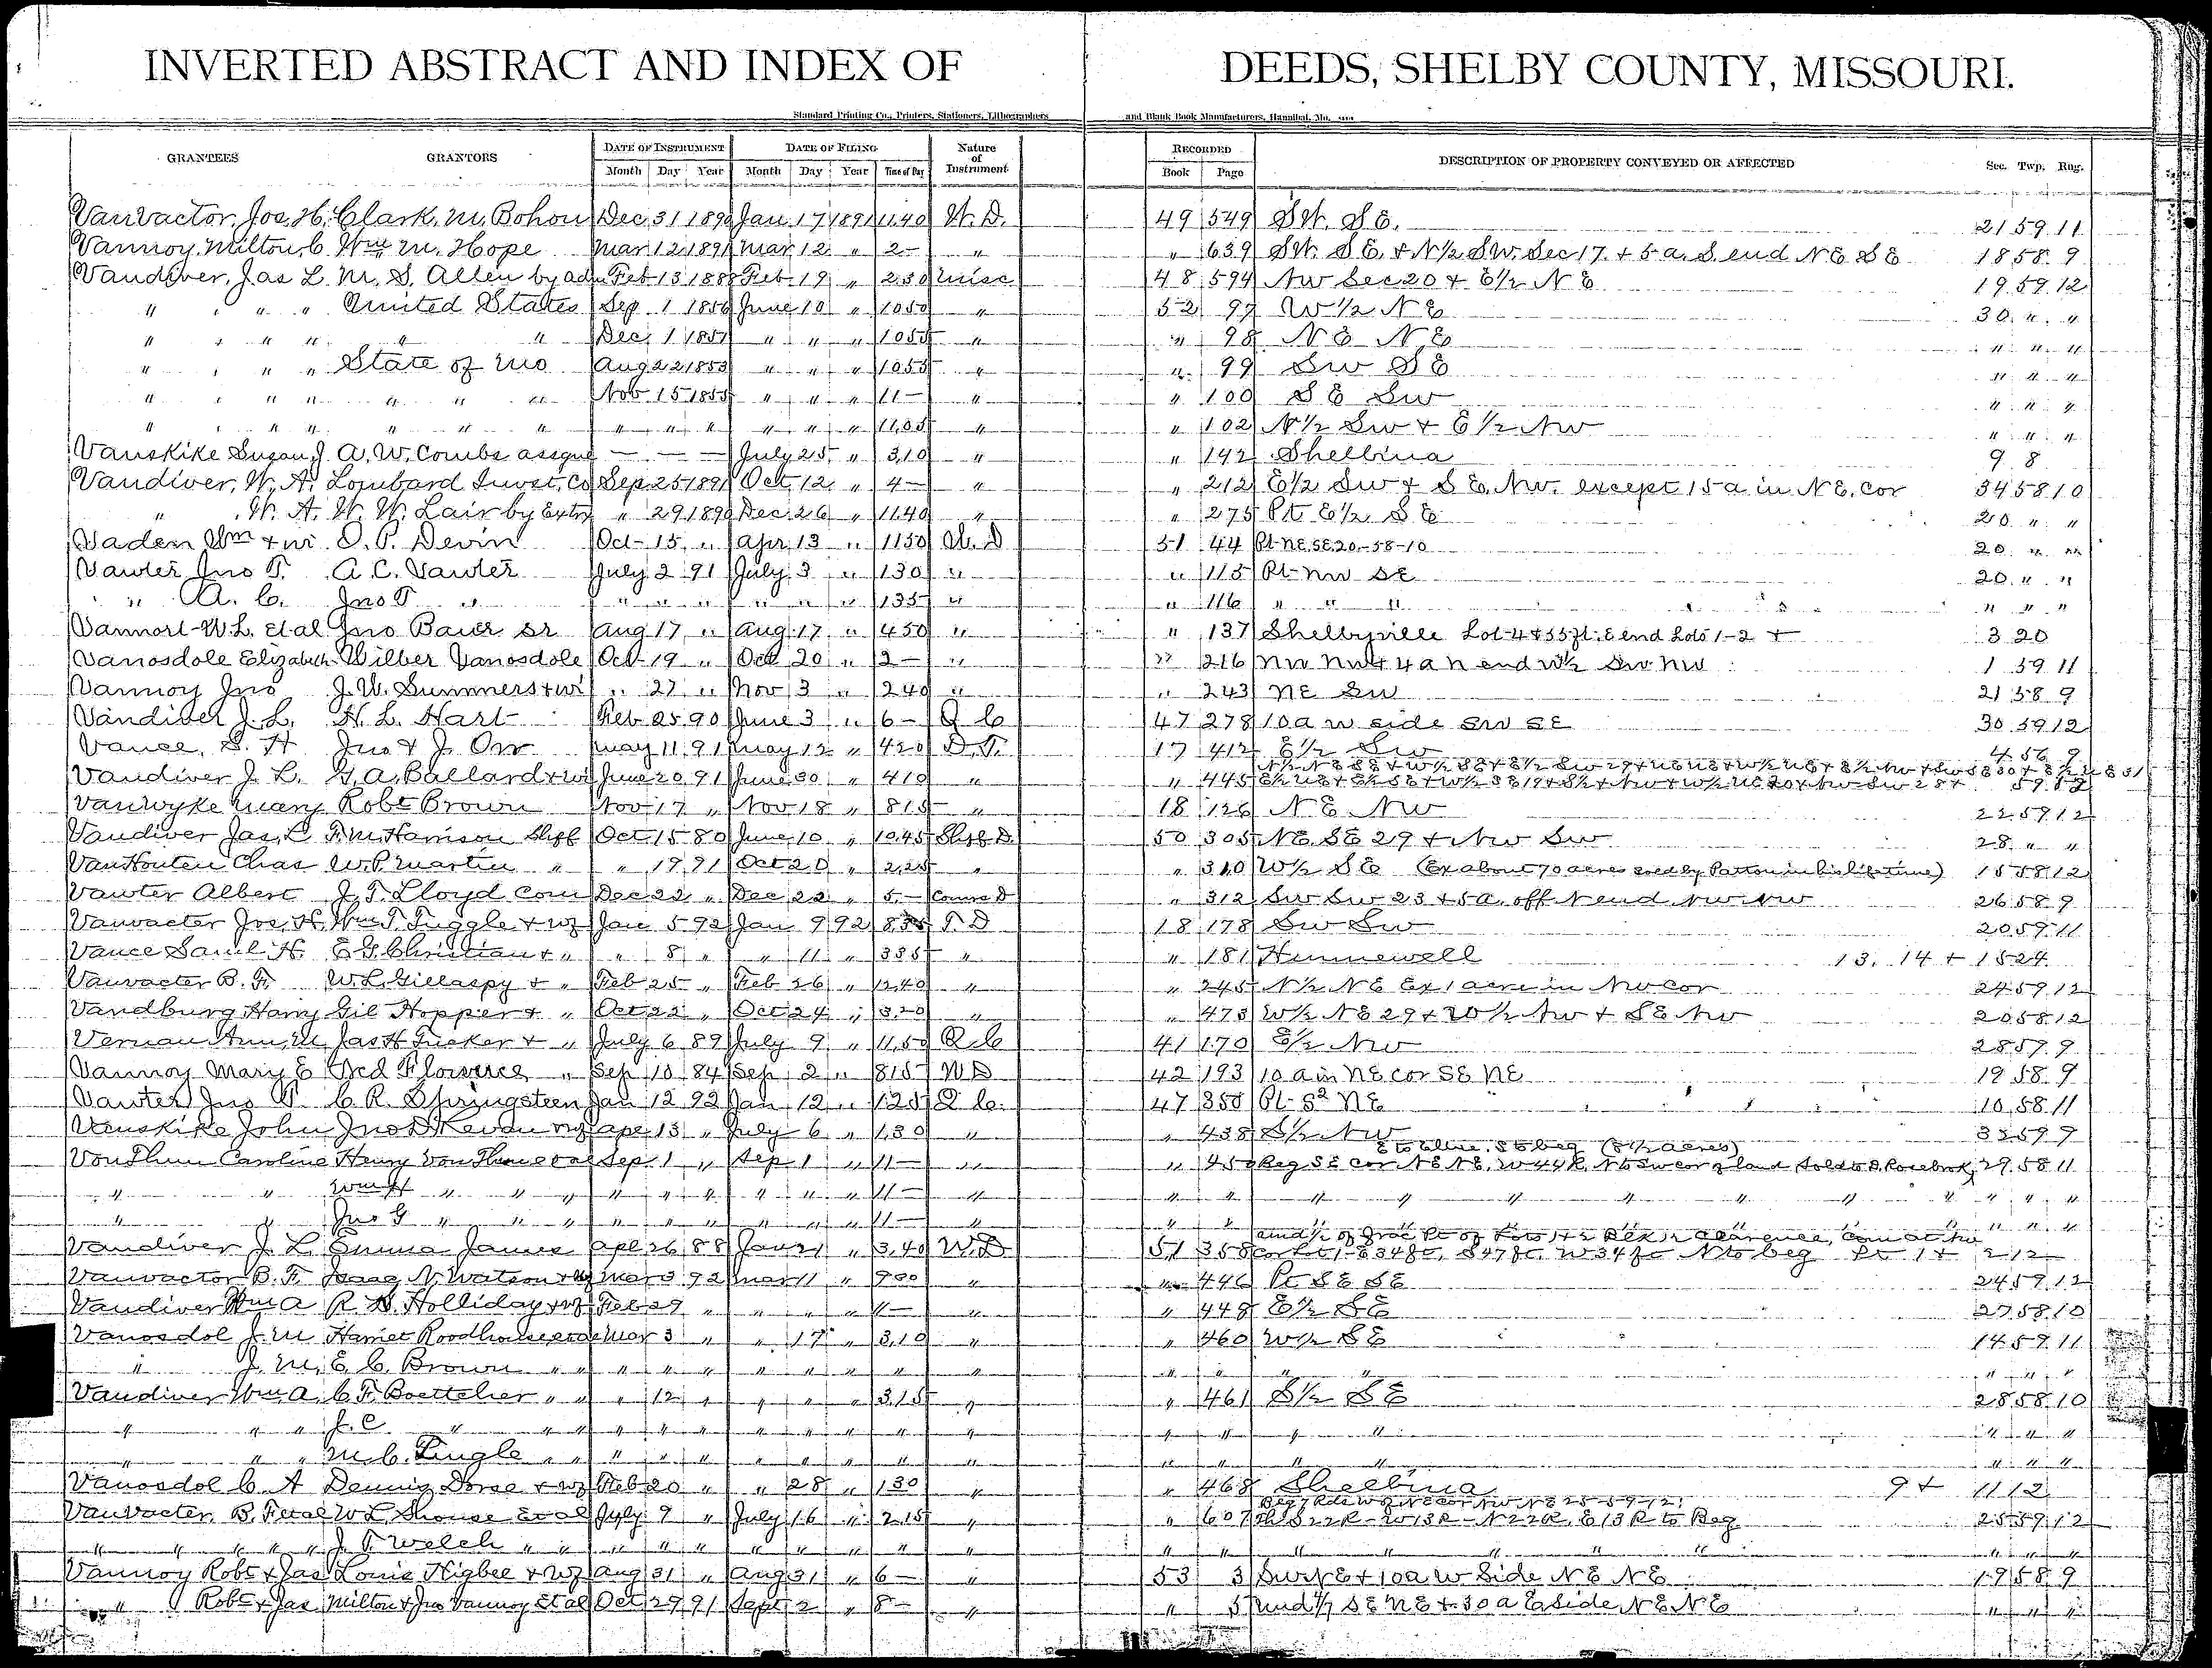 INVERTED ABSTRACT AND INDEX OF DEEDS, SHELBY COUNTY, MISSOURI.
Standard Printing Co., Printers, Stationers, Lithographers and Blank Book Manufacturers, Hannibal, Mo.
GRANTEES GRANTORS DATE OF INSTRUMENT DATE OF FILING Nature of Instrument RECORDED DESCRIPTION OF PROPERTY CONVEYED OR AFFECTED Sec. Twp. Rng.
Month Day Year Month Day Year Time of Day Book Page
Vanvactor, Jos. H. Clark, M. Bohon Dec 31 1890 Jan 17 1891 11.40 W. D. 49 549 SW. SE. 21 59 11
Vannoy, Milton, C Wm M. Hope Mar 12 1891 Mar 12 " 2- " " 639 SW. SE. & N½ SW. Sec 17. + 5 a. S. end NE SE 18 58 9
Vandiver, Jas L M. S. Allen by adm Feb 13 1888 Feb. 19 " 2.30 Misc 48 594 NW Sec 20 + E½ NE 19 59 12
" " " " United States Sep 1 1856 June 10 " 1050 " 52 97 W½ NE 30 " "
" " " " " " Dec 1 1857 " " " 1055 " " 98 NE NE " " "
" " " " State of Mo Aug 22 1853 " " " 1055 " " 99 SW SE " " "
" " " " " " " Nov. 15 1855 " " " 11- " " 100 SE SW " " "
" " " " " " " " " " " " " 11.05 " " 102 N½ SW + E½ NW " " "
Vanskike Susan, J. A. W. Combs assgne — — — July 25 " 3.10 " " 142 Shelbina 9 8
Vandiver, W. A. Lombard Invst. Co Sep 25 1891 Oct. 12 " 4- " " 212 E½ SW + SE. NW. except 15 a in NE. cor 34 58 10
" W. A. W. W. Lair by Extrx " 29 1890 Dec. 26 " 11.40 " " 275 Pt E½ SE 20 " "
Vaden Wm + wi. O. P. Devin Oct- 15 " Apr 13 " 1150 W. D 51 44 Pt- NE. SE. 20-58-10 20 " "
Vawter Jno T. A. C. Vawter July 2 91 July 3 " 130 " " 115 Pt- NW SE 20 " "
" " A. C. Jno T " " " " " " " 135 " " 116 " " " " " "
Vannort W. L. et al Jno Baier Sr Aug 17 " Aug. 17 " 450 " " 137 Shelbyville Lot 4 + 55 ft. E end Lots 1-2 + 3 20
Vanosdole Elizabeth Wilber Vanosdole Oct- 19 " Oct 20 " 2- " " 216 NW NW + 4 a N end W½ SW NW 1 59 11
Vannoy Jno J. W. Summers + wi " 27 " Nov 3 " 240 " " 243 NE SW 21 58 9
Vandiver J. L. H. L. Hart Feb 25 90 June 3 " 6- Q C 47 278 10 a W side SW SE 30 59 12
Vance, S. H Jno + J. Orr May 11 91 May 12 " 420 D. T. 17 412 E½ SW 4 56 9
Vandiver J. L. G. A. Ballard + wi June 20 91 June 30 " 410 " " 445
VanWyke Mary Robt Brown Nov 17 " Nov 18 " 815 " 18 126 NE NW 22 59 12
Vandiver Jas, L F. M. Harrison Shff Oct 15 80 June 10 " 1045 Shff D 50 305 NE SE 29 + NW SW 28 " "
VanHouten Chas W. P. Martin " " 19 91 Oct 20 " 2.25 " " 310 W½ SE (Ex about 70 acres sold by Patton in his lifetime) 15 58 12
Vawter Albert J. T. Lloyd Com Dec 22 " Dec 22 " 5- Comrs D " 312 SW SW 23 + 5 a. off N end NW NW 26 58 9
Vanvacter Jos. H. Wm T. Tuggle + wf Jan 5 92 Jan 9 92 8 T D 18 178 SW SW 20 59 11
Vance Saml H. E. G. Christian + " " 8 " " 11 " 385 " " 181 Hunnewell 13. 14 + 15 24
Vanvacter B. F. W. L. Gillaspy + " Feb 25 " Feb 26 " 12.40 " " 245 N½ NE Ex 1 acre in NW cor 24 59 12
Vandburg Harry Gil Hopper + " Oct 22 " Oct 24 " 3.20 " " 473 W½ NE 29 + W½ NW + SE NW 20 58 12
Vernan Ann, M. Jas H Tucker + " July 6 89 July 9 " 11.50 Q C 41 170 E½ NW 28 57 9
Vannoy Mary E Ged Florence " Sep 10 84 Sep 2 " 815 WD 42 193 10 a in NE cor SE NE 19 58 9
Vawter Jno T. C. R. Springsteen Jan 12 92 Jan 12 " 125 Q C. 47 355 Pt- S2 NE 10 58 11
Vanskike John Jno Apr 13 " July 6 " 1.30 " " 438 S½ NW 35 59 9
E to line. S to beg (5½ acres)
Von Thun Caroline Henry Von Thun et al Sep 1 " Sep 1 " 11- " " 450 Beg SE cor NE NE, W 44 R, N to SW cor of land sold to D. Rosebrok, 29. 58 11
" " Wm H " " " " " " " " " 11- " " " " " " " " " " " "
" " Jno G " " " " " " " " " 11- " " " " " "
Vandiver J. L Emma James Apl 26 88 Jan 21 " 3.40 W. D 51 358 cor Lot 1- E 34 ft, S 47 ft. W 34 ft N to beg Pt 1 + 2 12
Vanvactor B. F. Isaac N. Watson + wf Mar 3 92 Mar 11 " 900 " " 446 Pt SE SE 24 59 12
Vandiver Wm A R. H. Holliday + wf Feb 29 " " " " 11- " " 448 E½ SE 27 58 10
Vanosdol J. M Harriet Roodhouse et al Mar 3 " " 17 " 3.10 " " 460 W½ SE 14 59 11
" J. M. E. C. Brown " " " " " " " " " " " " " " " " " "
Vandiver Wm A. C. F. Boettcher " " " 12 " " " " 3.15 " " 461 S½ SE 28 58 10
" " " J. C " " " " " " " " " " " " " " " " " "
" " " M. C. Lingle " " " " " " " " " " " " " " " "
Vanosdol C. A Dennis Dorse + wf Feb 20 " " 28 " 1.30 " " 468 Shelbina 9 + 11 12
Beg 7 Rds W of NE cor NW NE 25-59-12,
Vanvacter, B. F et al W L Shouse et al July 9 " July 16 " 2.15 " " 607 th S 22 R - W 13 R - N 22 R, E 13 R to Beg 25 59 12
" " " " " J. F. Welch " " " " " " " " " " " " " " " " " " "
Vannoy Robt + Jas Louis Higbee + wf Aug 31 " Aug 31 " 6- " 53 3 SW NE + 10 a W Side NE NE 19 58 9
" Robt + Jas Milton + Jno Vannoy et al Oct 29 91 Sept 2 " 8- " " 5 und 1/7 SE NE + 30 a E side NE NE " " "